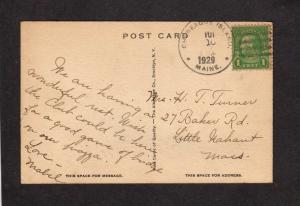 POST CARD
CHEBEAGUE ISLAND
10
1929
MAINE.
1 CENT 1
We are having a
wonderful rest. Wish
the Club could be here
for a good game of bridge
on our piazza.
Love -
Mabel
Mrs. H. T. Turner
27 Baker Rd.
Little Nahant
Mass.
THIS SPACE FOR MESSAGE.
THIS SPACE FOR ADDRESS.